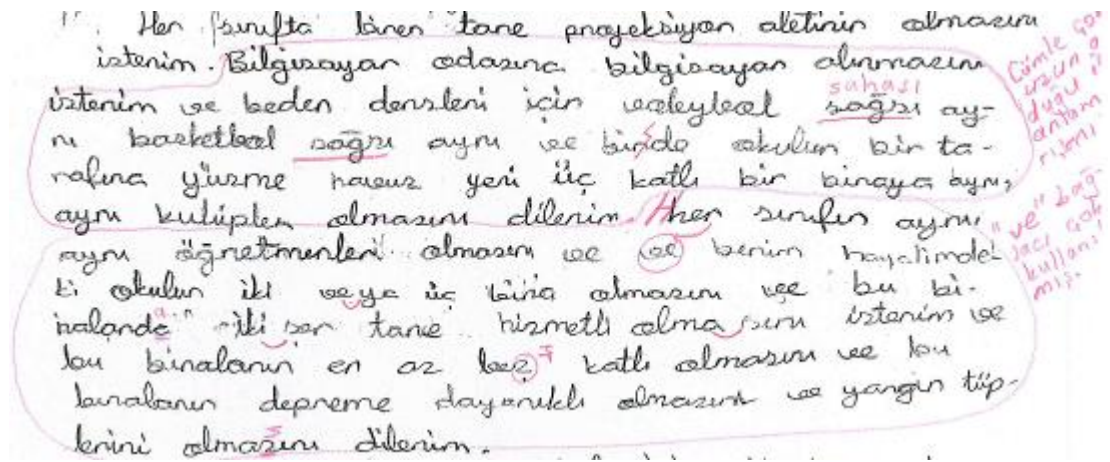 Her sınıfta birer tane projeksiyon aletinin olmasını
isterim. Bilgisayar odasına bilgisayar alınmasını
isterim ve beden dersleri için voleybol sağsı ay-
sahası
rı basketbol sağsı ayrı ve birde okulun bir ta-
rafına yüzme havuz yeri üç katlı bir binaya ayrı,
ayrı kulüpler olmasını dilerim. Her sınıfın ayrı
ayrı öğretmenleri olmasını ve ve benim hayalimde-
ki okulun iki veya üç bina olmasını ve bu bi-
nalarda iki şer tane hizmetli olma sını isterim ve
bu binaların en az beş katlı olmasını ve bu
binaların depreme dayanıklı olmasını ve yangın tüp-
lerini olmasını dilerim.
Cümle çok
uzun o
duğu i
anlam
"ve" bağ
lacı çok
kullanıl
mış.